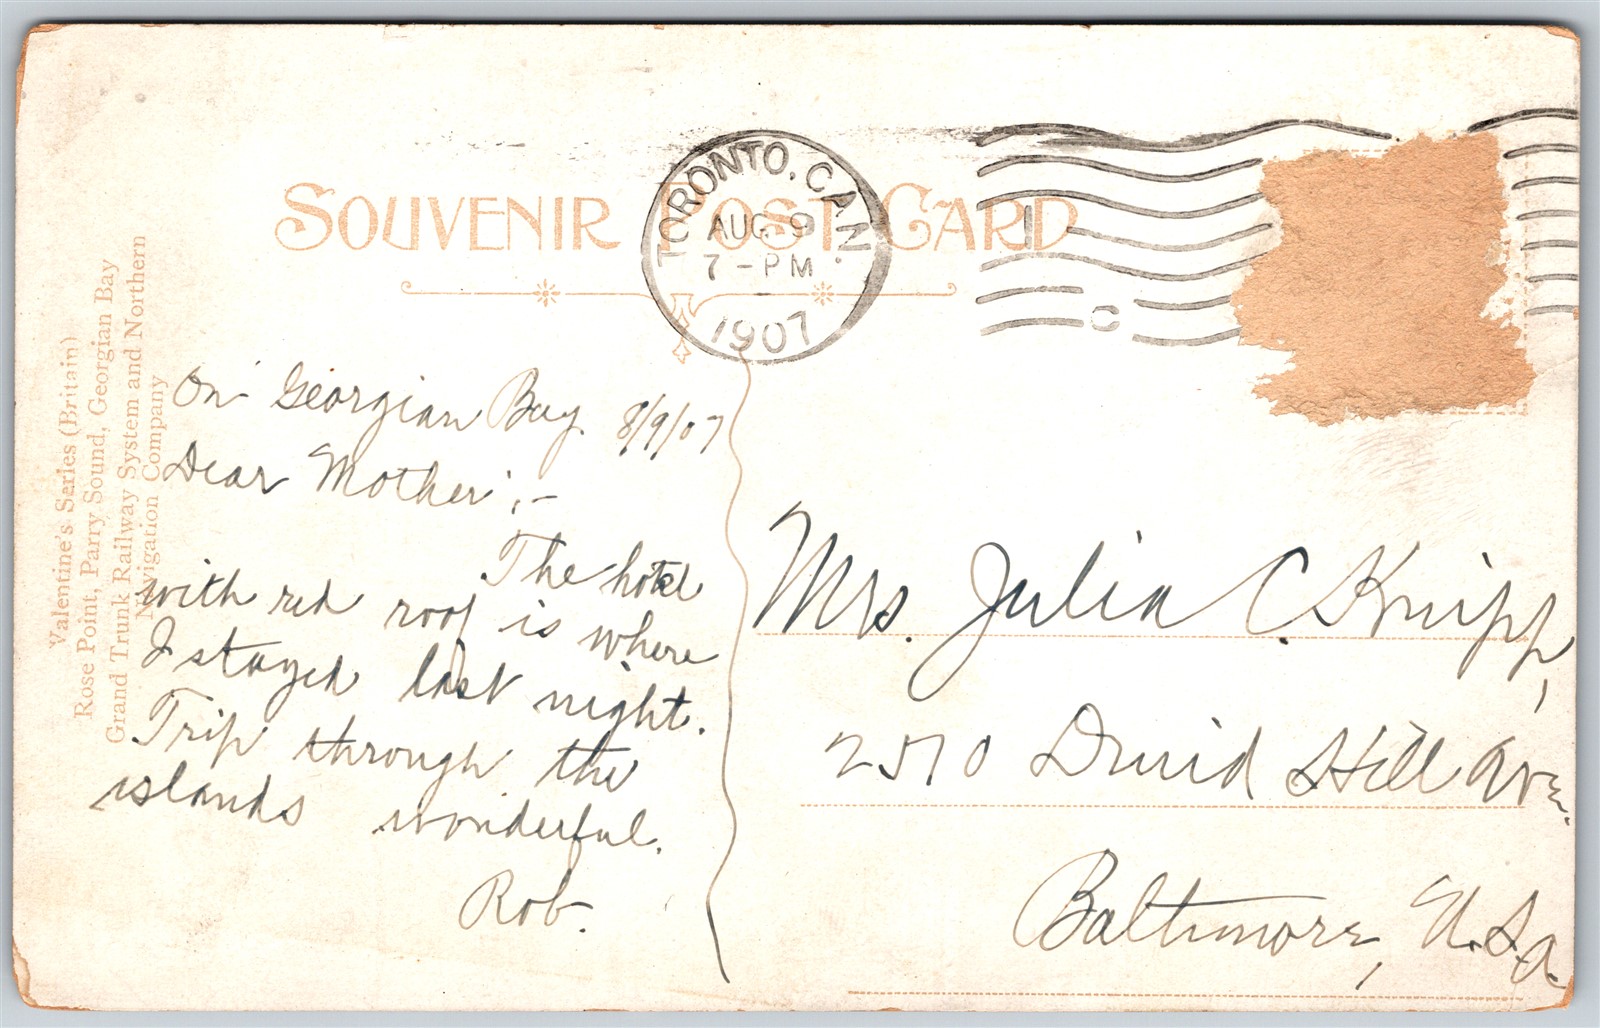 SOUVENIR POST CARD
TORONTO, CAN.
AUG 9
7-PM
1907
1
C
Valentine's Series (Britain)
Rose Point, Parry Sound, Georgian Bay
Grand Trunk Railway System and Northern
Navigation Company
On Georgian Bay. 8/9/07
Dear Mother;-
The hotel
with red roof is where
I stayed last night.
Trip through the
islands wonderful.
Rob.
Mrs. Julia C. Knipp,
2570 Druid Hill Ave.
Baltimore, U.S.A.